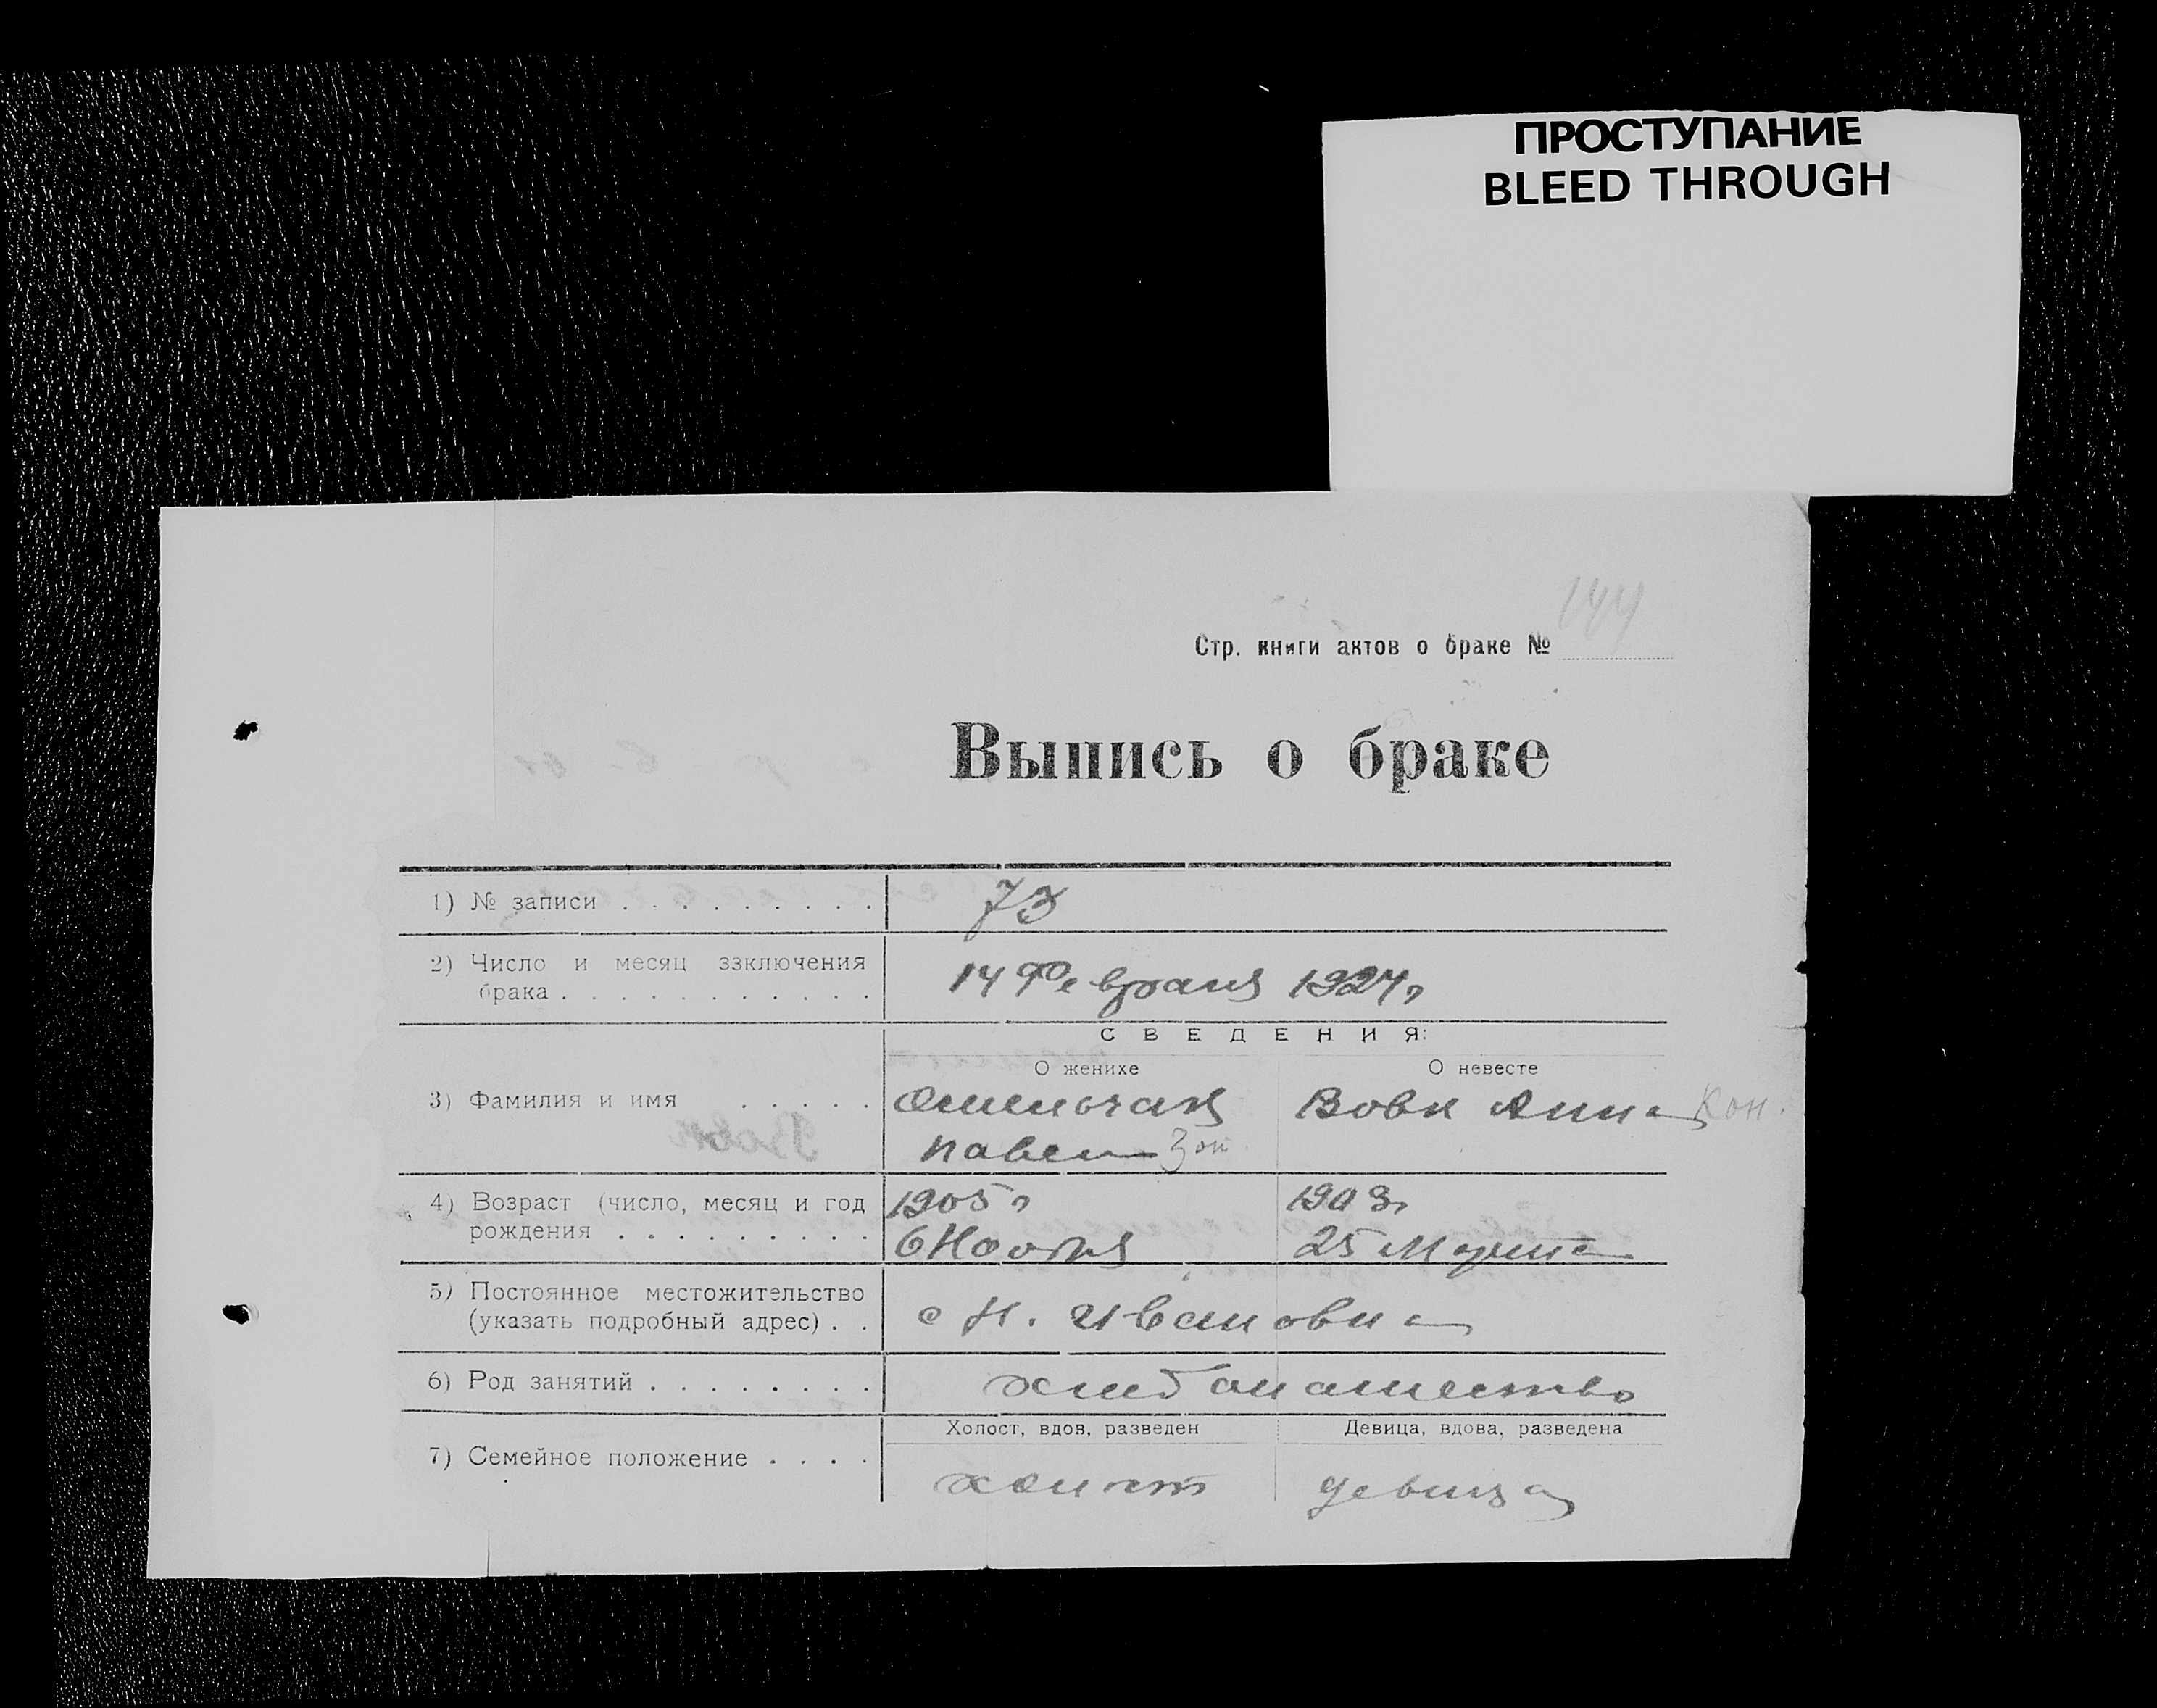 ПРОСТУПАНИЕ
BLEED THROUGH
144
Стр. книги актов о браке №
Выпись о браке
1) № записи . . . . . . . . . 73
2) Число и месяц ззключения
брака . . . . . . . . . . . 14 Февраля 1924 г
СВЕДЕНИЯ:
О женихе О невесте
3) Фамилия и имя . . . . . Вовк Анна Кон.
Павел Зон
4) Возраст (число, месяц и год 1905 г 1903 г
рождения . . . . . . . . . 6 Ноября 25 Марта
5) Постоянное местожительство
(указать подробный адрес) . . с Н. Ивановка
6) Род занятий . . . . . . . . хлебопашество
Холост, вдов, разведен Девица, вдова, разведена
7) Семейное положение . . . .
холост девица